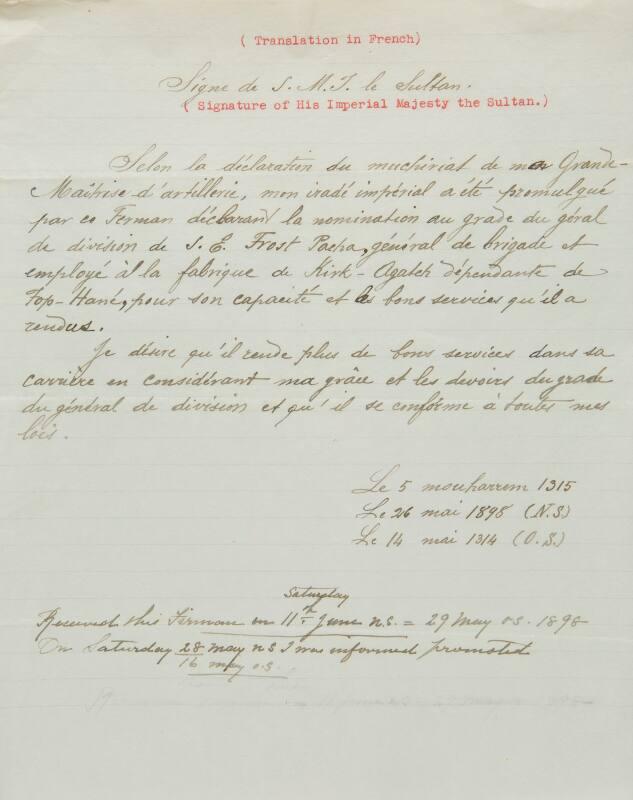 ( Translation in French)
Signe de S. M. I. le Sultan.
( Signature of His Imperial Majesty the Sultan.)
Selon la déclaration du muchiriat de ma Grande-
Maîtrise d'artillerie, mon iradé impérial a été promulgué
par ce Ferman déclarant la nomination au grade du géral
de division de S. E. Frost Pacha, général de brigade et
employé à la fabrique de Kirk-Agatch dépendante de
Top-Hané, pour son capacité et les bons services qu'il a
rendus.
Je désire qu'il rende plus de bons services dans sa
carrière en considérant ma grâce et les devoirs du grade
du général de division et qu'il se conforme à toutes mes
lois.
Le 5 mouharrem 1315
Le 26 mai 1898 (N.S)
Le 14 mai 1314 (O.S.)
Saturday
Received this Firman on 11th June n.s. = 29 May o.s. 1898
On Saturday 28 May n s I was informed promoted
16 May o.s.